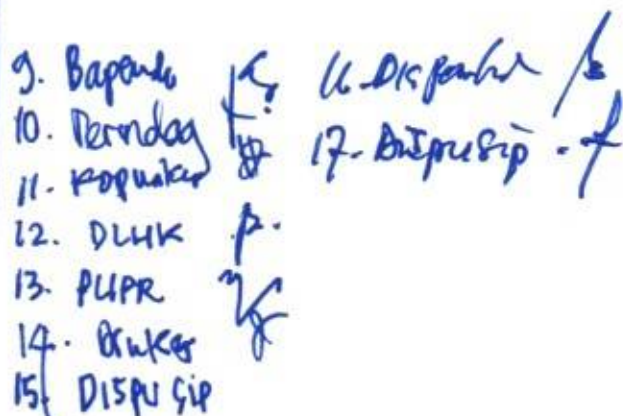 9. Bapenda
10. Perindag
11. Kopnaker
12. DLHK
13. PUPR
14. Dinkes
15. DISPUSIP
16. Disparbud
17. Dispusip